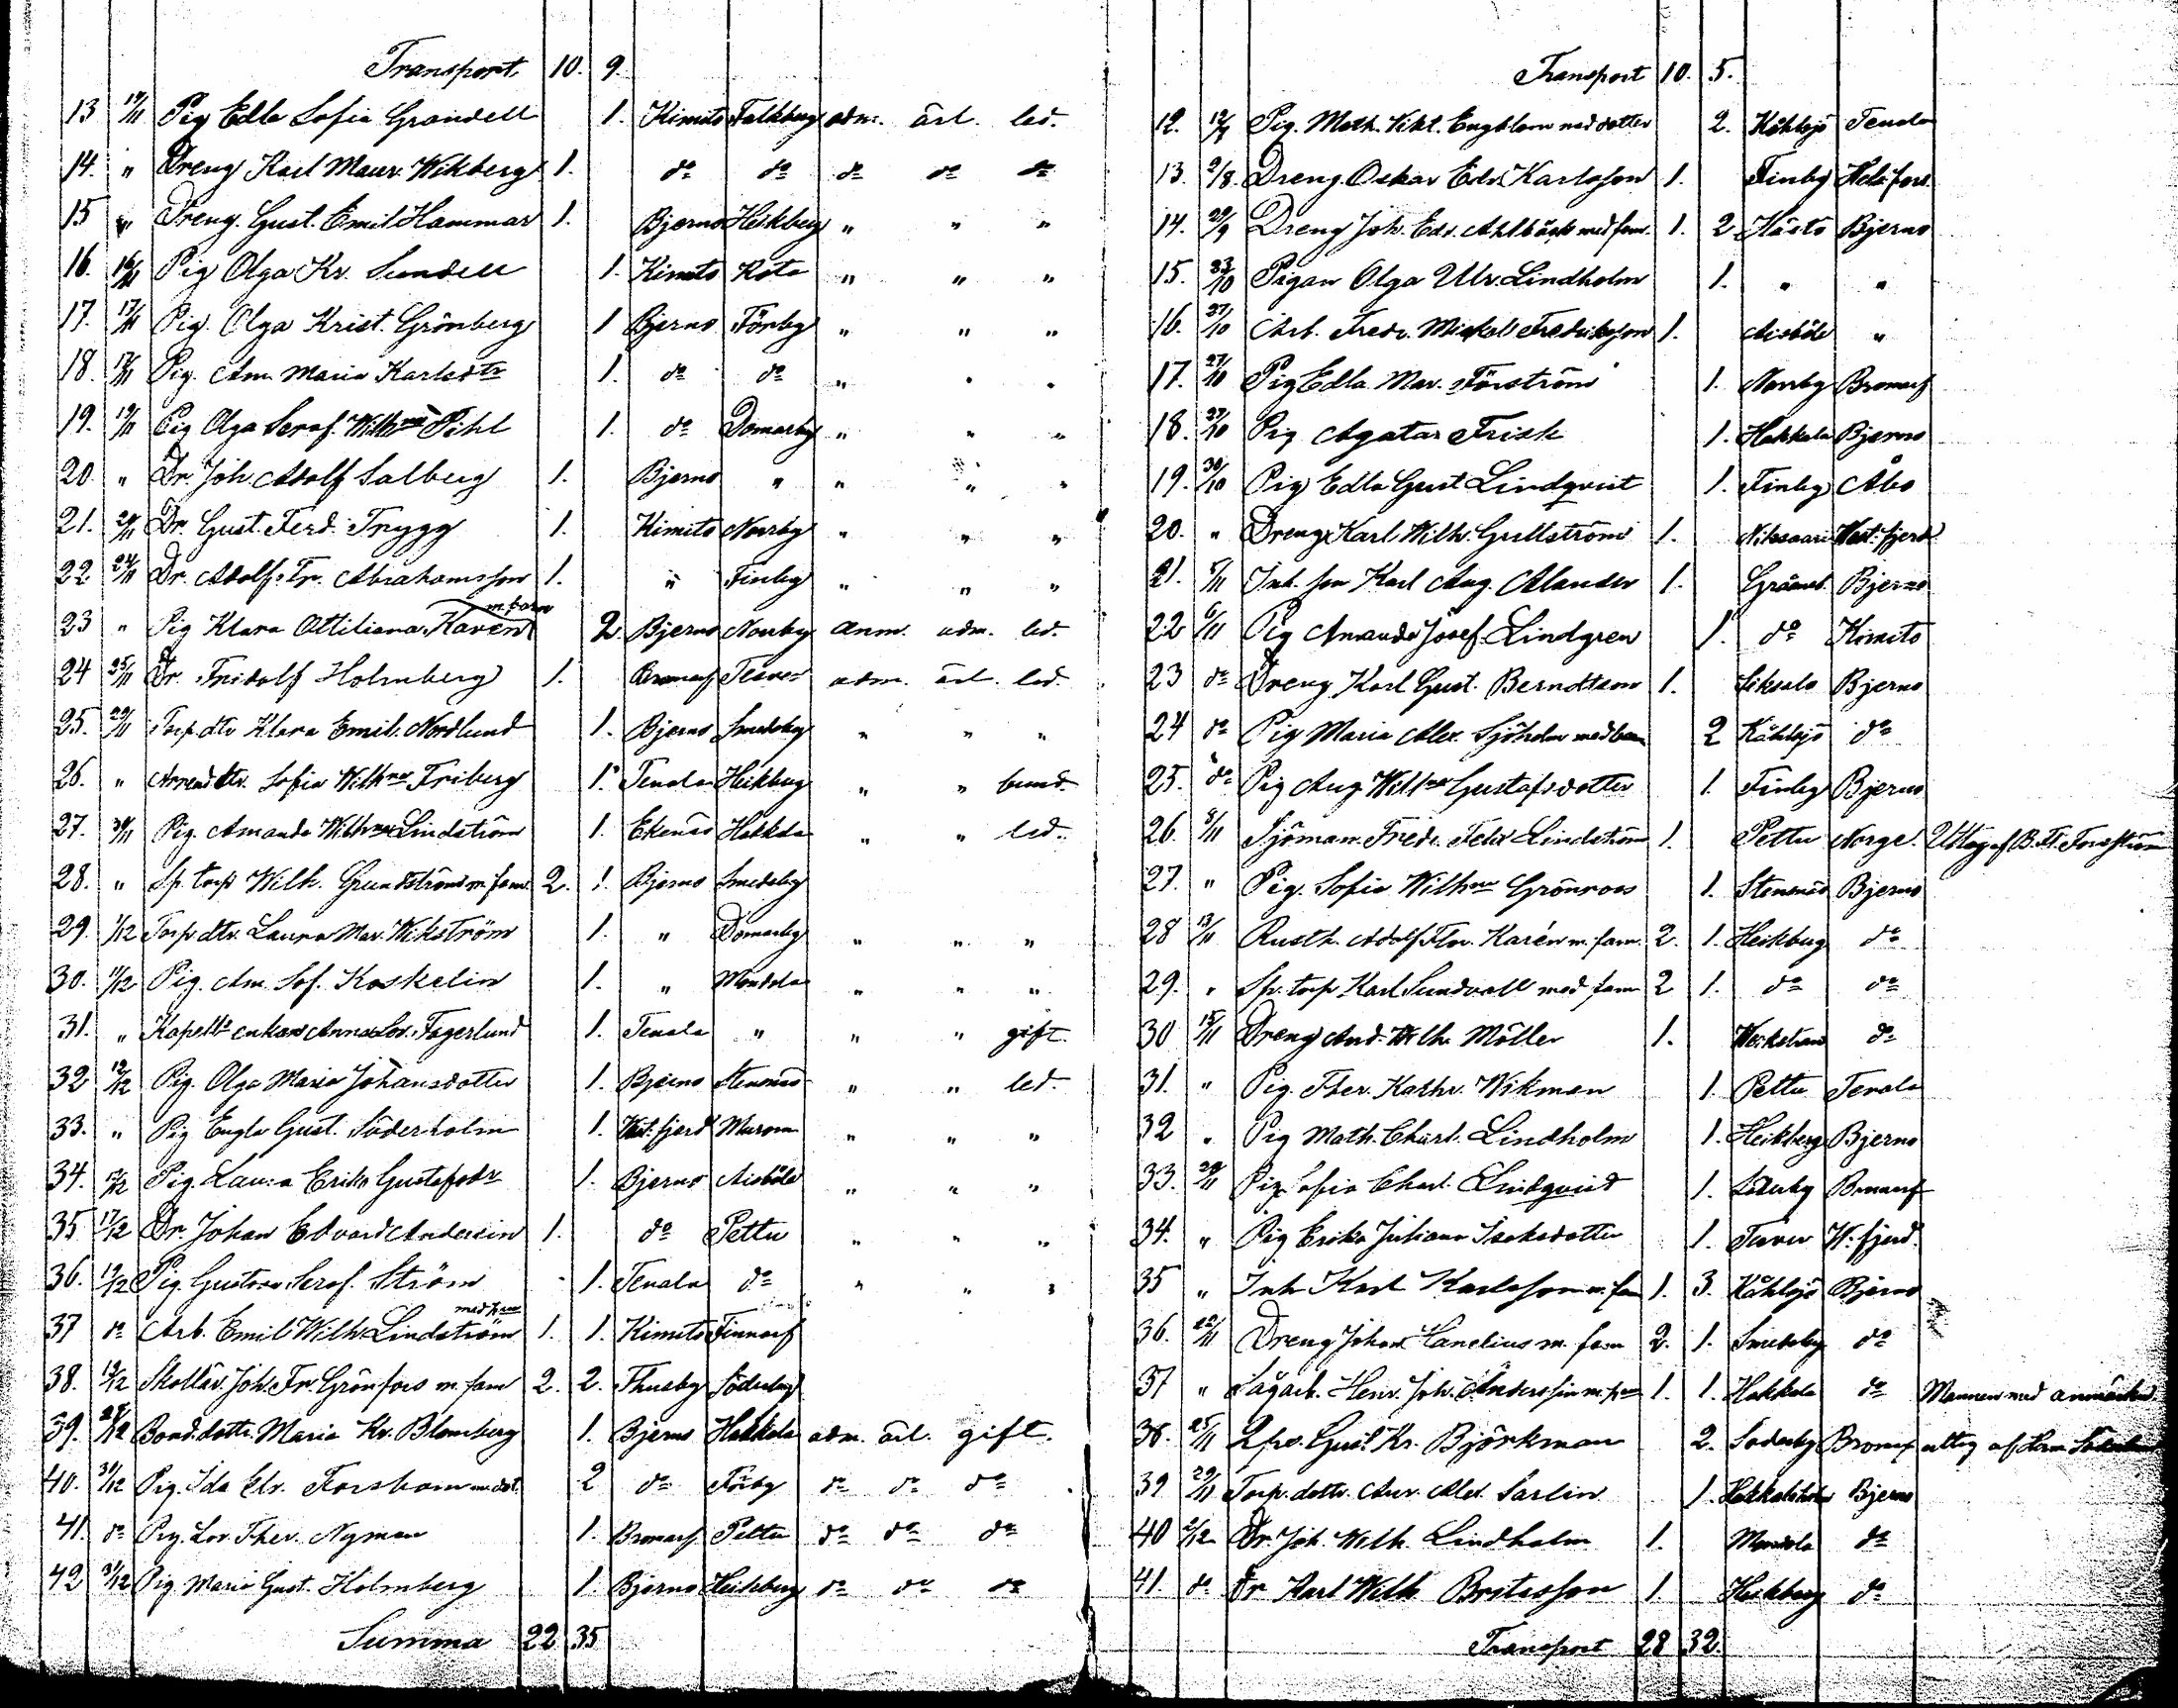 Transport 10. 9.
13 19/11 Pig Edla Sofia Grandell 1. Kimito Falkberg adm. ärl. led.
14. " Dreng Karl Maur. Wikberg 1. do do do do do
15 " Dreng. Gust. Emil Hammar 1. Bjerno Heikberg " " "
16. 16/11 Pig Olga Kr. Sundell 1. Kimito Rota " " "
17. 17/11 Pig. Olga Krist. Grönberg 1 Bjerno Förby " " "
18. 17/11 Pig. Am. Maria Karlsdtr 1. do do " " "
19. 19/11 Pig Olga Seraf. Wilhna Pihl 1. do Domarby " " "
20. " Dr. Joh. Adolf Salberg 1. Bjerno " " " "
21. 20/11 Dr. Gust. Ferd. Trygg 1. Kimito Norrby " " "
22 24/11 Dr. Adolf Fr. Abrahamsson 1. " Finby " " "
23 " Pig Klara Ottiliana Karén m. barn 2. Bjerno Norrby anm. adm. led.
24 25/11 Dr. Fridolf Holmberg 1. Bromarf adm. ärl. led.
25. 29/11 Torp.dtr Klara Emil. Nordlund 1. Bjerno Smedsby " " "
26. " Arrend.dtr. Sofia Wilhna Friberg 1. Tenala Heikberg " " bund.
27. 30/11 Pig. Amanda Wilhna Lindström 1. Ekenäs Hakkala " " led.
28. " Sp. torp Wilh. Grundström m. fam. 2. 1. Bjerno Smedsby
29. 1/12 Torp.dtr. Laura Mar. Wikström 1. " Domarby " " "
30. 11/12 Pig. Am. Sof. Koskelin 1. " Mondola " " "
31. " Kapells enkan Anna Lov. Fagerlund 1. Tenala " " " gift.
32 12/12 Pig. Olga Maria Johansdotter 1. Bjerno Stensnäs " " led.
33. " Pig Engla Gust. Söderholm 1. Kist.fjerd " " "
34. 12/12 Pig. Laura Erika Gustafsdr 1. Bjerno Aisböle " " "
35 17/12 Dr. Johan Edvard Andersin 1. do Pettu " " "
36. 19/12 Pig. Gustava Seraf. Ström 1. Tenala do " " "
37 do Arb. Emil Wilh. Lindström med hru 1. 1. Kimito Finnarf
38. 19/12 Skollär. Joh. Fr. Grönfors m. fam 2. 2. Thusby Söderby
39. 28/12 Bond.dottr. Maria Kr. Blomberg 1. Bjerno Hakkala adm. ärl. gift.
40. 31/12 Pig. Ida Elv. Forsbom m. dot. 2 do Förby do do do
41. do Pig. Lov. Ther. Nyman 1. Bromarf Pettu do do do
42 31/12 Pig. Maria Gust. Holmberg 1. Bjerno Heikberg do do do
Summa 22 35
Transport 10. 5.
12. 12/7 Pig. Math. Vikt. Engblom med dotter 2. Kåhlsjö Tenala
13. 2/8. Dreng. Oskar Edv. Karlsson 1. Finby Hels.fors.
14. 29/9 Dreng Joh. Edv. Ahlbäck med fam. 1. 2 Hästö Bjerno
15. 23/10 Pigan Olga Ulr. Lindholm 1. " "
16. 27/10 Arb. Fredr. Mickel Fredriksson 1. Aisböle "
17. 27/10 Pig Edla Mar. Förström 1. Norrby Bromarf
18. 27/10 Pig Agata Frisk 1. Hakkala Bjerno
19. 30/10 Pig Edla Gust. Lindqvist 1. Finby Åbo
20. " Dreng Karl Wilh. Gullström 1. Niksaari Kist.fjerd
21. 5/11 Inh. son Karl Aug. Alander 1. Bjerno
22 6/11 Pig Amanda Josef. Lindgren 1. do Kimito
23 do Dreng Karl Gust. Berndtson 1. Siksalo Bjerno
24 do Pig Maria Alex. Sjöholm med barn 2 Kåhlsjö do
25. do Pig Aug. Wilhna Gustafsdotter 1. Finby Bjerno
26. 8/11 Sjöman Fredr. Felix Lindström 1. Pettu Norge. Uttag af B. Fr. Forsström
27. " Pig. Sofia Wilhna Grönroos 1. Stensnäs Bjerno
28 13/11 Rusth. Adolf Flor. Karén m. fam. 2. 1. Heikberg do
29. " Sp. torp Karl Sundvall med fam 2 1. do do
30 15/11 Dreng And. Wilh. Möller 1. do
31. " Pig. Ther. Kathr. Wikman 1. Pettu Tenala
32 " Pig Math. Charl. Lindholm 1. Heikberg Bjerno
33. 20/11 Pig Sofia Charl. Lindqvist 1. Söderby Bromarf
34. " Pig Erika Juliana Isaksdotter 1. K.fjerd.
35 " Inh Karl Karlsson m. fam 1. 3. Kåhlsjö Bjerno
36. 22/11 Dreng Johan Hanelius m. fam 2. 1. Smedsby do
37 " Sågarb. Henr. Joh. Andersin m. hru 1. 1. Hakkala do Mannen med anmärkn.
38. 25/11 Gust. Kr. Björkman 2. Söderby Bromarf uttag af
39 29/11 Torp. dottr. Aur. Alex. Sarlin 1. Bjerno
40 2/12 Dr Joh. Wilh. Lindholm 1. Mondola do
41. do Dr Karl Wilh. 1. Heikberg do
Transport 28 32.